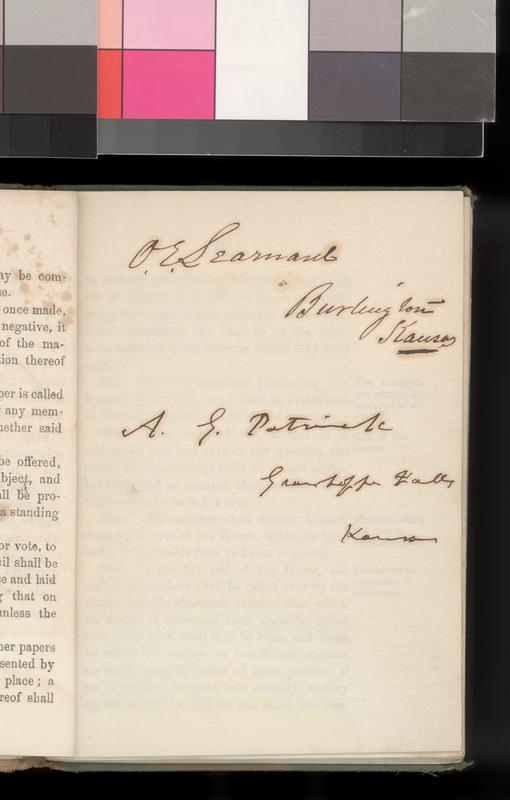 ay be com-
se.
once made,
negative, it
of the ma-
tion thereof
per is called
any mem-
hether said
be offered,
bject, and
all be pro-
a standing
or vote, to
cil shall be
se and laid
g that on
unless the
her papers
sented by
place; a
reof shall
O. E. Learnard
Burlington
Kansas
A. G. Patrick
Grasshopper Falls
Kansas